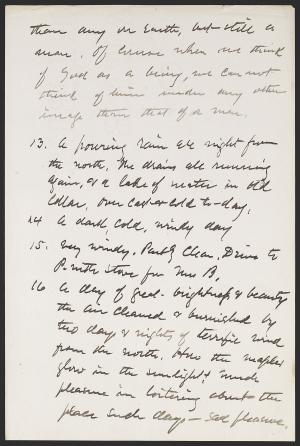 than any on Earth, but still a
man. Of course when we think
of God as a being, we can not
think of him under any other
image than that of a man.
13. A pouring rain all night from
the north, the drains all running
again, & a lake of water in old
cellar. Overcast & cold to-day.
14 A dark, cold, windy day
15. very windy. Partly clear. Drive to
P. with stove for Mrs B.
16 A day of great brightness & beauty
the air cleaned & burnished by
two days & nights of terrific wind
from the north. How the maples
glow in the sunlight! much
pleasure in loitering about the
place such days — sad pleasure.